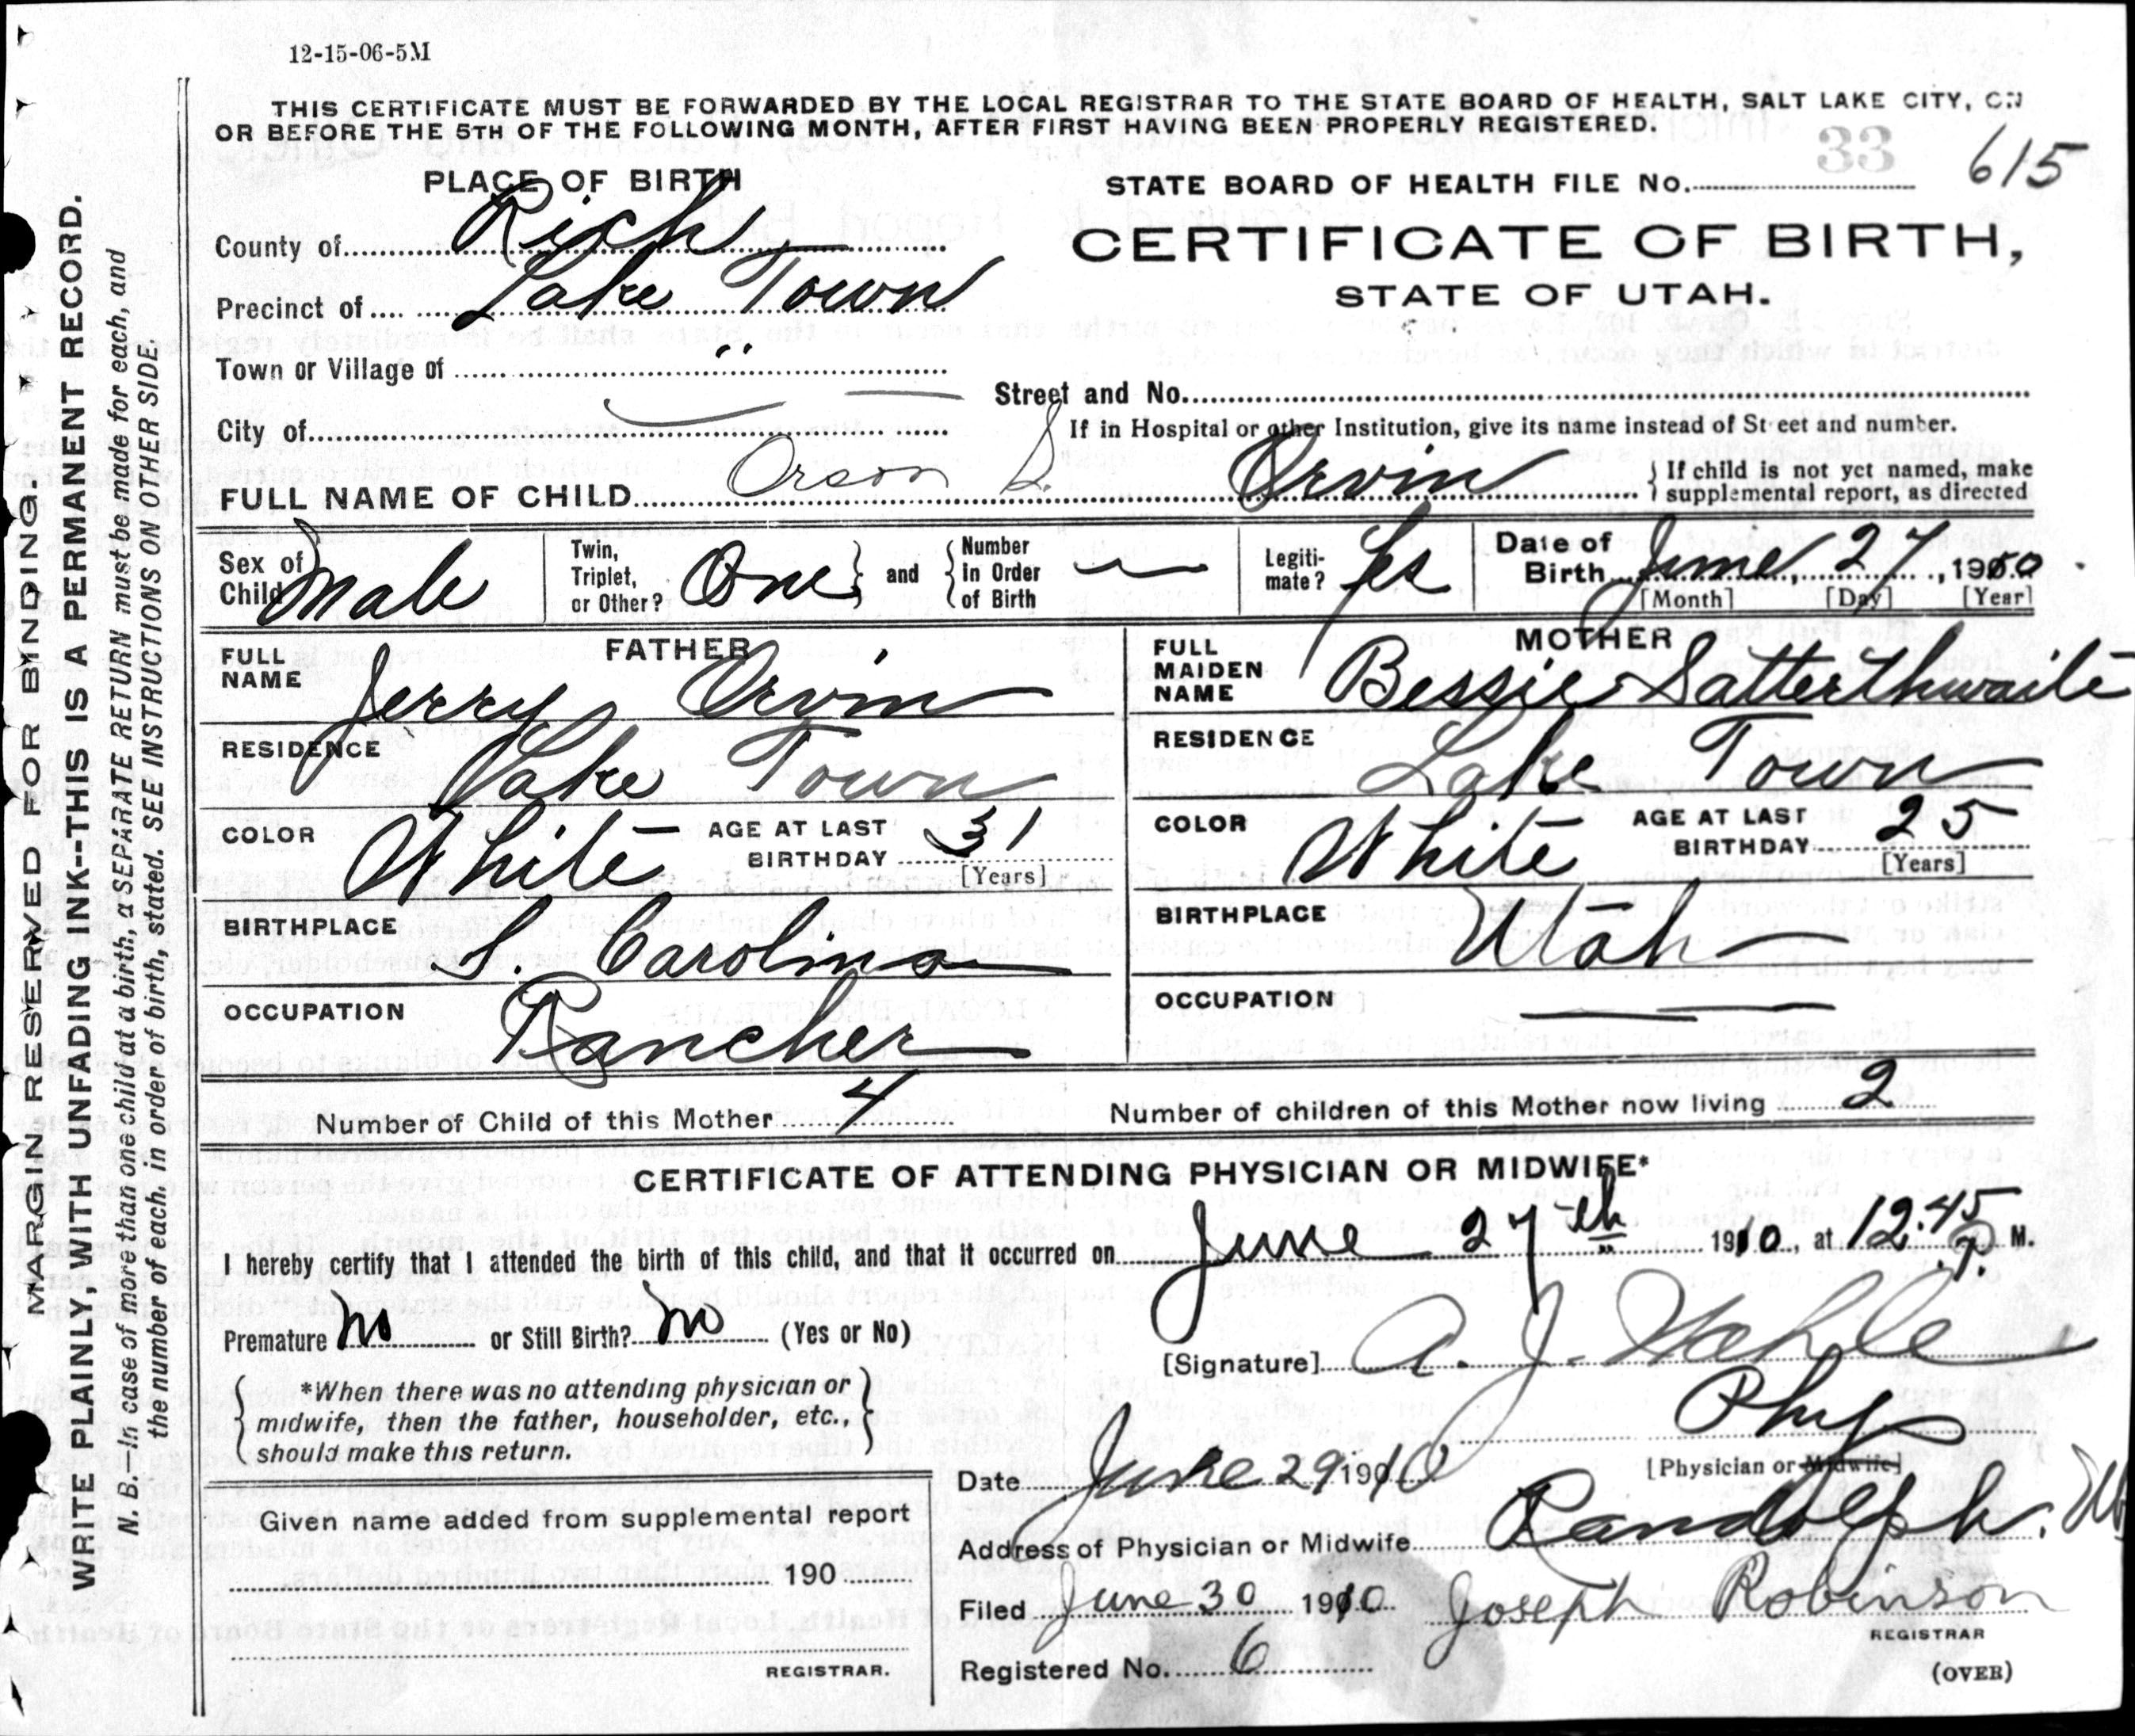 12-15-06-5M
THIS CERTIFICATE MUST BE FORWARDED BY THE LOCAL REGISTRAR TO THE STATE BOARD OF HEALTH, SALT LAKE CITY, ON
OR BEFORE THE 5TH OF THE FOLLOWING MONTH, AFTER FIRST HAVING BEEN PROPERLY REGISTERED.
PLACE OF BIRTH
County of Rich
Precinct of Lake Town
Town or Village of "
City of
STATE BOARD OF HEALTH FILE No. 33 615
CERTIFICATE OF BIRTH,
STATE OF UTAH.
Street and No.
If in Hospital or other Institution, give its name instead of St eet and number.
FULL NAME OF CHILD Orson S. Orvin
} If child is not yet named, make
supplemental report, as directed
Sex of Child Male
Twin, Triplet, or Other? One } and { Number in Order of Birth —
Legiti-mate? Yes
Date of Birth June 27, 1910
[Month] [Day] [Year]
FATHER
FULL NAME Jerry Orvin
RESIDENCE Lake Town
COLOR White AGE AT LAST BIRTHDAY 31
[Years]
BIRTHPLACE S. Carolina
OCCUPATION Rancher
MOTHER
FULL MAIDEN NAME Bessie Satterthwaite
RESIDENCE Lake Town
COLOR White AGE AT LAST BIRTHDAY 25
[Years]
BIRTHPLACE Utah
OCCUPATION
Number of Child of this Mother 4
Number of children of this Mother now living 2
CERTIFICATE OF ATTENDING PHYSICIAN OR MIDWIFE*
I hereby certify that I attended the birth of this child, and that it occurred on June 27th 1910, at 12.45 P. M.
Premature no or Still Birth? no (Yes or No)
{ *When there was no attending physician or
midwife, then the father, householder, etc., }
should make this return.
[Signature] A. J.
Phys
[Physician or Midwife]
Date June 29 1910
Address of Physician or Midwife Randolph.
Filed June 30 1910 Joseph Robinson
REGISTRAR
Registered No. 6
(OVER)
Given name added from supplemental report
190
REGISTRAR.
MARGIN RESERVED FOR BINDING.
WRITE PLAINLY, WITH UNFADING INK--THIS IS A PERMANENT RECORD.
N. B.—In case of more than one child at a birth, a SEPARATE RETURN must be made for each, and
the number of each, in order of birth, stated. SEE INSTRUCTIONS ON OTHER SIDE.